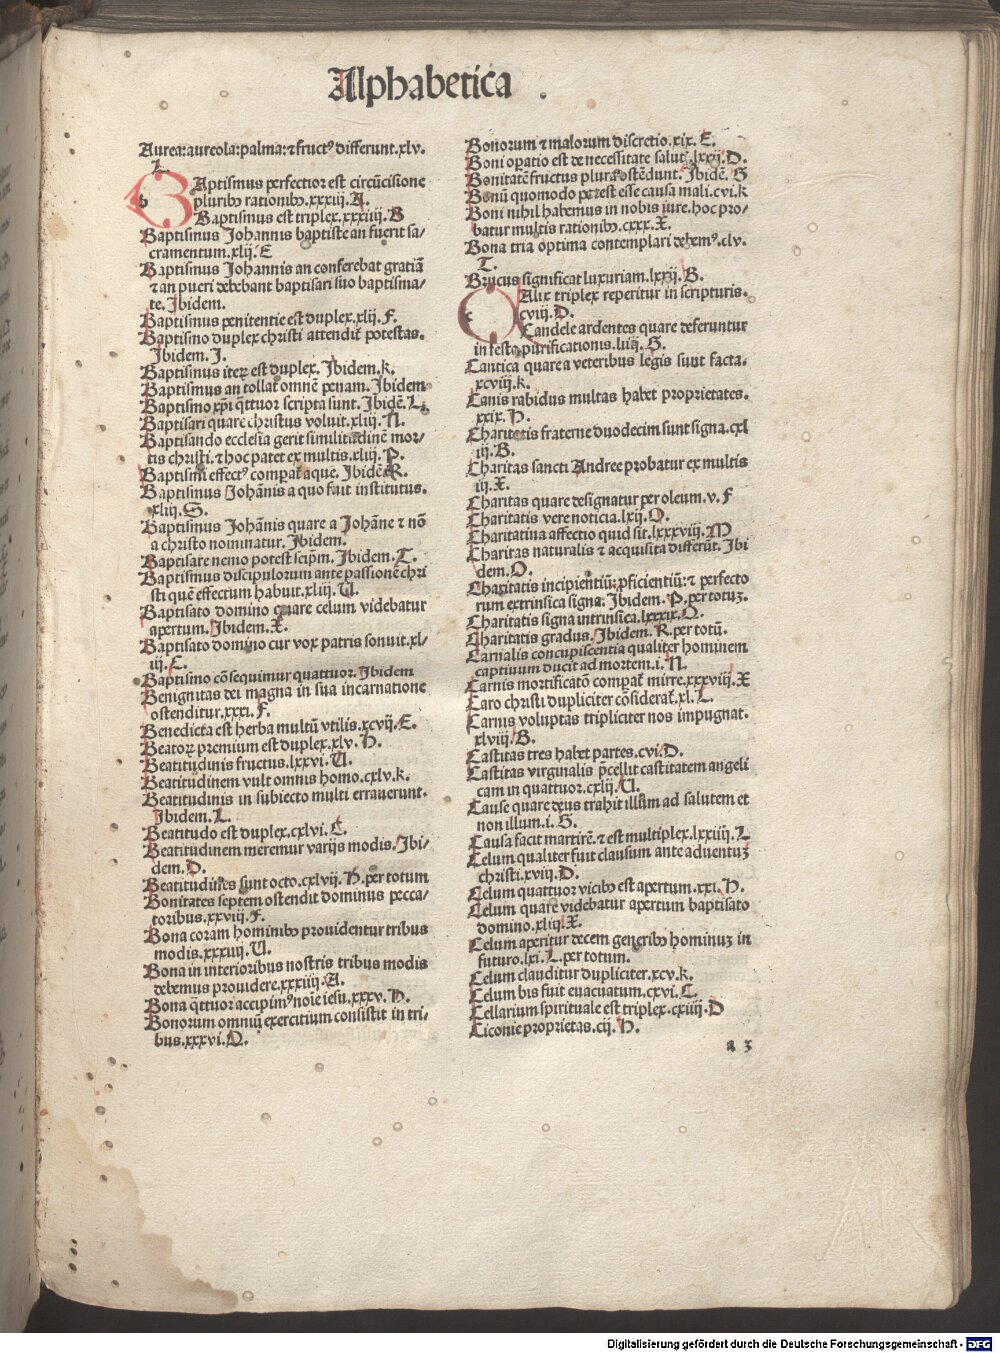 Alphabetica .
Aurea: aureola: palma: ⁊ fructꝰ differunt.xlv.
L.
Baptismus perfectior est circūcisione
pluribꝰ rationibꝰ.xxxiij.A.
Baptismus est triplex.xxxiiij.B
Baptismus Johannis baptiste an fuerit sa⸗
cramentum.xlij.E
Baptismus Johannis an conferebat gratiā
⁊ an pueri debebant baptisari suo baptisma⸗
te. Jbidem.
Baptismus penitentie est duplex.xlij.F.
Baptismo duplex christi attendit᷑ potestas.
Jbidem.J.
Baptismus iteꝝ est duplex. Jbidem.k.
Baptismus an tollat omnē penam. Jbidem
Baptismo xp̄i q̈ttuor scripta sunt. Jbidē.L.
Baptisari quare christus voluit.xliij.N.
Baptisando ecclesia gerit similitudinē mor⸗
tis christi. ⁊ hoc patet ex multis.xliij.P.
Baptismi effectꝰ compat᷑ aque. Jbidē.R.
Baptismus Johānis a quo fuit institutus.
xliij.S.
Baptismus Johānis quare a Johāne ⁊ nō
a christo nominatur. Jbidem.
Baptisare nemo potest seip̄m. Jbidem.T.
Baptismus discipulorum ante passionē chri
sti quē effectum habuit.xliij.U.
Baptisato domino quare celum videbatur
apertum. Jbidem.X.
Baptisato domino cur vox patris sonuit.xl⸗
iij.C.
Baptismo cōsequimur quattuor. Jbidem
Benignitas dei magna in sua incarnatione
ostenditur.xxxi.F.
Benedicta est herba multū vtilis.xcvij.E.
Beatoꝝ premium est duplex.xlv.H.
Beatitudinis fructus.lxxvi.U.
Beatitudinem vult omnis homo.cxlv.k.
Beatitudinis in subiecto multi erraverunt.
Jbidem.L.
Beatitudo est duplex.cxlvi.C.
Beatitudinem meremur varijs modis. Jbi⸗
dem.D.
Beatitudines sunt octo.cxlvij.H.per totum
Bonitates septem ostendit dominus pecca⸗
toribus.xxviij.F.
Bona coram hominibꝰ prouidentur tribus
modis.xxxiij.U.
Bona in interioribus nostris tribus modis
debemus prouidere.xxxiiij.A.
Bona q̈ttuor accipimꝰ noīe iesu.xxxv.H.
Bonorum omniū exercitium consistit in tri⸗
bus.xxxvi.Q.
Bonorum ⁊ malorum discretio.xix.E.
Boni oꝑatio est de necessitate salut᷒.lxxij.D.
Bonitatē fructus plura ostēdunt. Jbidē.G
Bonū quomodo potest esse causa mali.cvi.k
Boni nihil habemus in nobis iure. hoc pro⸗
batur multis rationibꝰ.cxxx.X.
Bona tria optima contemplari debemꝰ.clv.
T.
Brucus significat luxuriam.lxxij.B.
Calix triplex reperitur in scripturis.
cviij.D.
Candele ardentes quare deferuntur
in festo purificationis.luij.G.
Cantica quare a veteribus legis sunt facta.
xcviij.k.
Canis rabidus multas habet proprietates.
xxix.P.
Charitatis fraterne duodecim sunt signa.cxl
iij.B.
Charitas sancti Andree probatur ex multis
iij.X.
Charitas quare designatur per oleum.v.F
Charitatis vere noticia.lxij.O.
Charitatina affectio quid sit.lxxxviij.M
Charitas naturalis ⁊ acquisita differūt. Jbi
dem.O.
Charitatis incipientiū: ꝓficientiū: ⁊ perfecto
rum extrinsica signa. Jbidem.P.per totuꝫ.
Charitatis signa intrinsica.lxxxix.Q.
Charitatis gradus. Jbidem.R.per totū.
Carnalis concupiscentia qualiter hominem
captiuum ducit ad mortem.i.N.
Carnis mortificatōn compat᷑ mirre.xxxviij.X
Caro christi dupliciter cōsiderat᷑.xl.L.
Carnis voluptas tripliciter nos impugnat.
xlviij.B.
Castitas tres habet partes.cvi.D.
Castitas virginalis p̄cellit castitatem angeli
cam in quattuor.cxlij.U.
Cause quare deus trahit illum ad salutem et
non illum.i.G.
Causa facit martirē. ⁊ est multiplex.lxxiiij.L
Celum qualiter fuit clausum ante aduentuꝫ
christi.xviij.D.
Celum quattuor vicibꝰ est apertum.xxi.H.
Celum quare videbatur apertum baptisato
domino.xliij.X.
Celum aperitur decem generibꝰ hominuꝫ in
futuro.lxi.L.per totum.
Celum clauditur dupliciter.xcv.k.
Celum bis fuit euacuatum.cxvi.C.
Cellarium spirituale est triplex.cxiiij.D
Ciconie proprietas.cij.H.
a 3
Digitalisierung gefördert durch die Deutsche Forschungsgemeinschaft - DFG